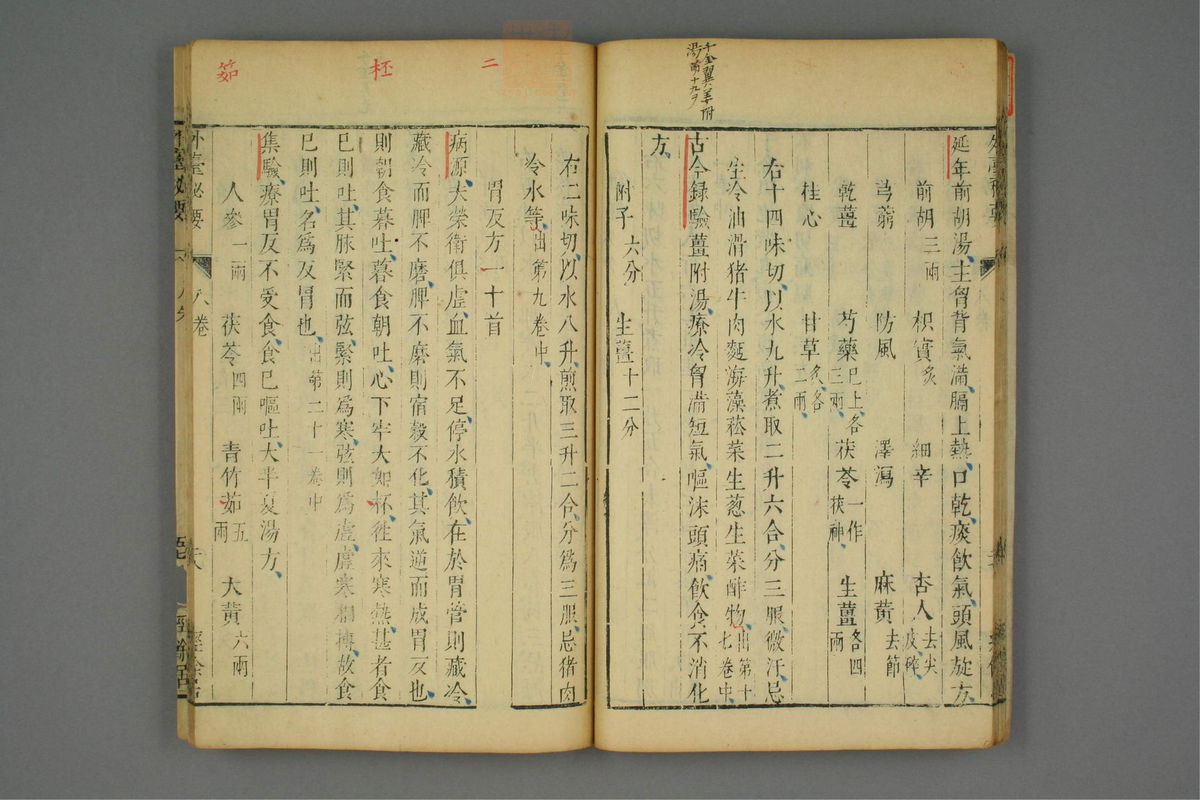 千金翼羊附
湯
延年前胡湯主胷背氣滿膈上熱口乾痰飲氣頭風旋方
前胡三兩 枳實炙 細辛 杏人去尖皮碎
芎藭 防風 澤瀉 麻黃去節
乾薑 芍藥已上各三兩 茯苓一作茯神 生薑各四兩
桂心 甘草炙各二兩
右十四味切以水九升煮取二升六合分三服微汗忌
生冷油滑猪牛肉麵海藻菘菜生葱生菜酢物出第十七卷中
古今録驗薑附湯療冷胷滿短氣嘔沫頭痛飲食不消化
方
附子六分 生薑十二分
二
柸
茹
右二味切以水八升煎取三升二合分爲三服忌猪肉
冷水等出第九卷中
胃反方一十首
病源夫榮衛俱虛血氣不足停水積飲在於胃管則藏冷
藏冷而脾不磨脾不磨則宿穀不化其氣逆而成胃反也
則朝食暮吐暮食朝吐心下牢大如杯徃來寒熱甚者食
已則吐其脉緊而弦緊則爲寒弦則爲虛虛寒相摶故食
已則吐名爲反胃也出第二十一卷中
集驗療胃反不受食食已嘔吐大半夏湯方
人參一兩 茯苓四兩 青竹茹五兩 大黃六兩
外臺秘要 八卷
經餘居